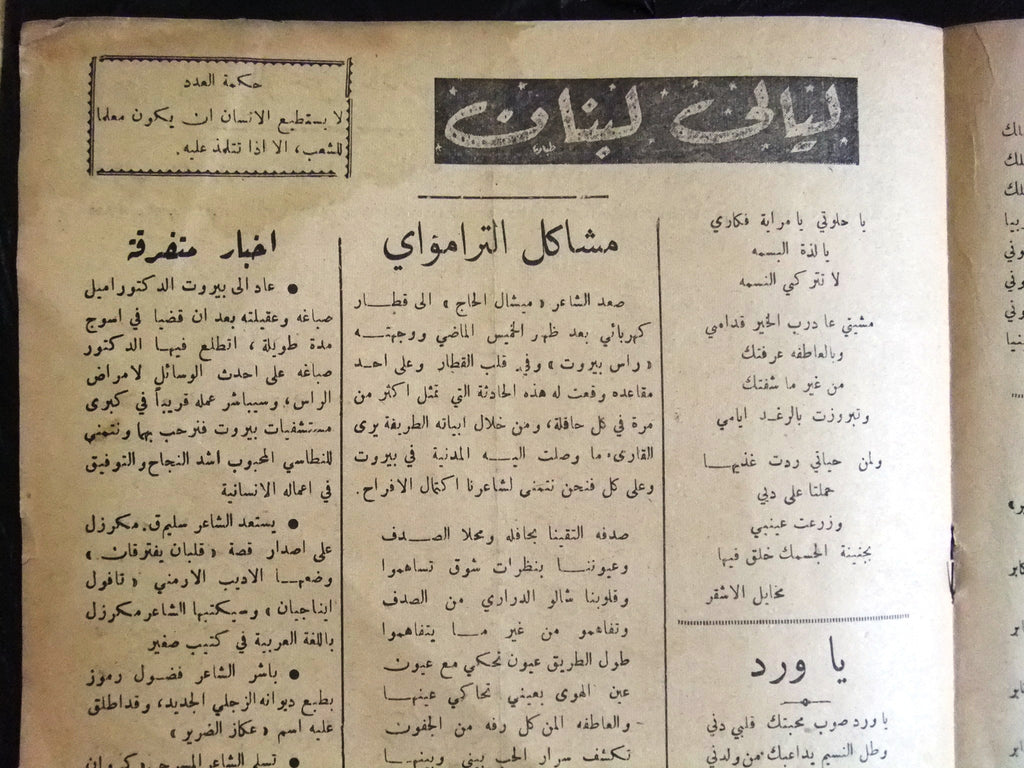 ليالي لبنان
حكمة العدد
لا يستطيع الانسان ان يكون معلما
للشعب، الا اذا تتلمذ عليه.
يا حلوتي يا مراية فكاري
يا لذة البسمه
لا تتركي النسمه
مشيتي عا درب الخير قدامي
وبالعاطفه عرفتك
من غير ما شفتك
وتبروزت بالرغد ايامي
ولمن حياتي ردت غذيهـا
حملتا على دبي
وزرعت عينيي
بجنينة الجسمك خلق فيها
مخايل الاشقر
يا ورد
يا ورد صوب محبتك قلبي دني
وطل النسيم يداعبك من ولدني
مشاكل التراموأي
صعد الشاعر « ميشال الحاج » الى قطـار
كهربائي بعد ظهر الخميس الماضي ووجهتـه
« راس بيروت » وفي قلب القطار وعلى احـد
مقاعده وقعت له هذه الحادثة التي تمثل اكثر من
مرة في كل حافلة، ومن خلال ابياته الطريفة يرى
القارىء ما وصلت اليـه المدنية في بيروت
وعلى كل فنحن نتمنى لشاعرنا اكتمال الافراح.
صدفه التقينا بحافله ومحلا الصـدف
وعيوننـا بنظرات شوق تساهموا
وقلوبنا شالو الدراري من الصدف
وتفاهمو من غير مـا يتفاهموا
طول الطريق عيون تحكي مع عيون
عين الهوى بعيني تحاكي عينهـا
والعاطفه المن كل رفه من الجفون
تكشف سرار الحب بيني وبينهـا
اخبار متفرقة
● عاد الى بيروت الدكتور اميل
صباغه وعقيلته بعد ان قضيا في اسوج
مدة طويلة، اتطلع فيهـا الدكتور
صباغه على احدث الوسائل لامراض
الراس، وسيباشر عمله قريباً في كبرى
مستشفيات بيروت فنرحب بهما ونتمنى
للنطاسي المحبوب اشد النجاح والتوفيق
في اعماله الانسانية
● يستعد الشاعر سليم ق. مكرزل
على اصدار قصة « قلبان يفترقان »
وضعهـا الاديب الارمني « تافول
ايناجيان » وسيكتبها الشاعر مكرزل
باللغة العربية في كتيب صغير
● باشر الشاعر فضـول رموز
بطبع ديوانه الزجلي الجديد، وقد اطلق
عليه اسم « عكاز الضرير »
● تسلم الشاعر